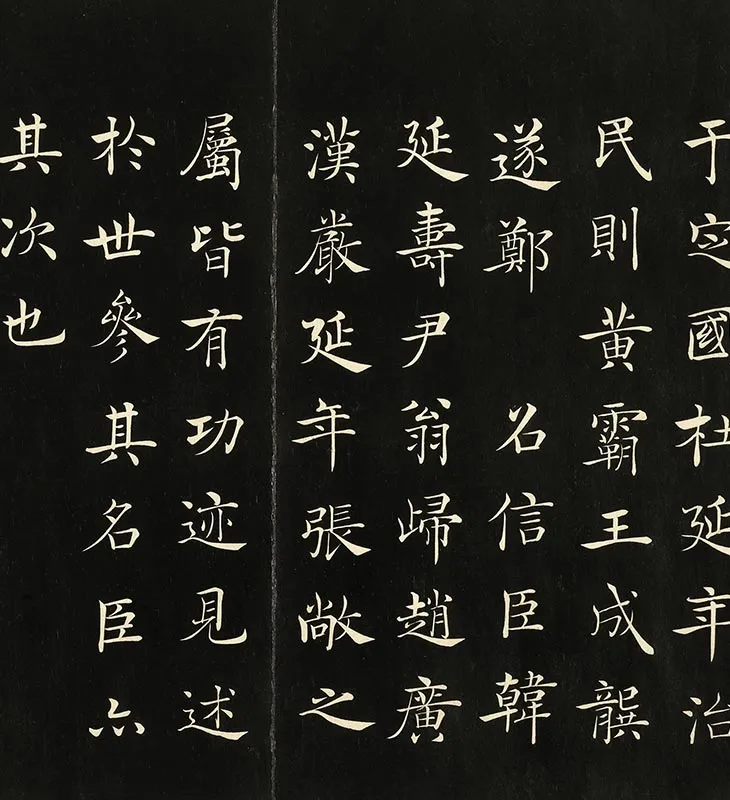 于定國杜延年治
民則黃霸王成龔
遂鄭 召信臣韓
延壽尹翁歸趙廣
漢嚴延年張敞之
屬皆有功迹見述
於世參其名臣亦
其次也